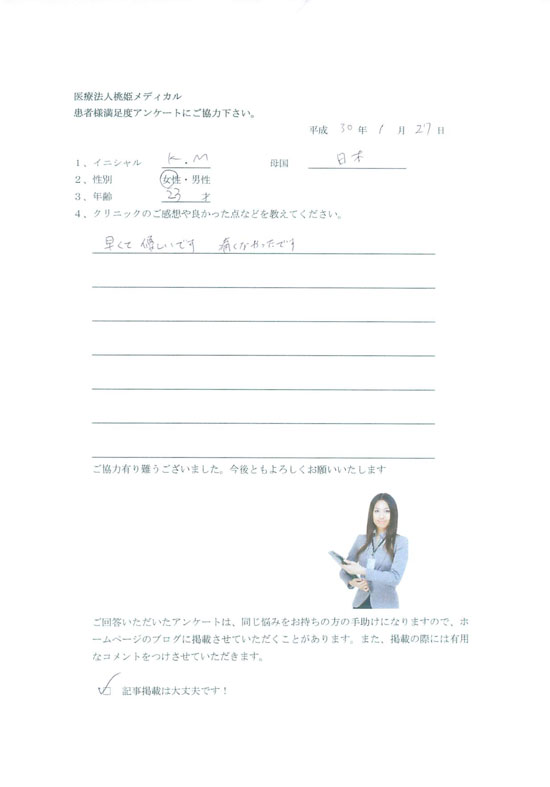 医療法人桃姫メディカル
患者様満足度アンケートにご協力下さい。
平成 30 年 1 月 27 日
1、イニシャル K.M 母国 日本
2、性別 女性・男性
3、年齢 23 才
4、クリニックのご感想や良かった点などを教えてください。
早くて 優しいです 痛くなかったです
ご協力有り難うございました。今後ともよろしくお願いいたします
ご回答いただいたアンケートは、同じ悩みをお持ちの方の手助けになりますので、ホ
ームページのブログに掲載させていただくことがあります。また、掲載の際には有用
なコメントをつけさせていただきます。
記事掲載は大丈夫です！